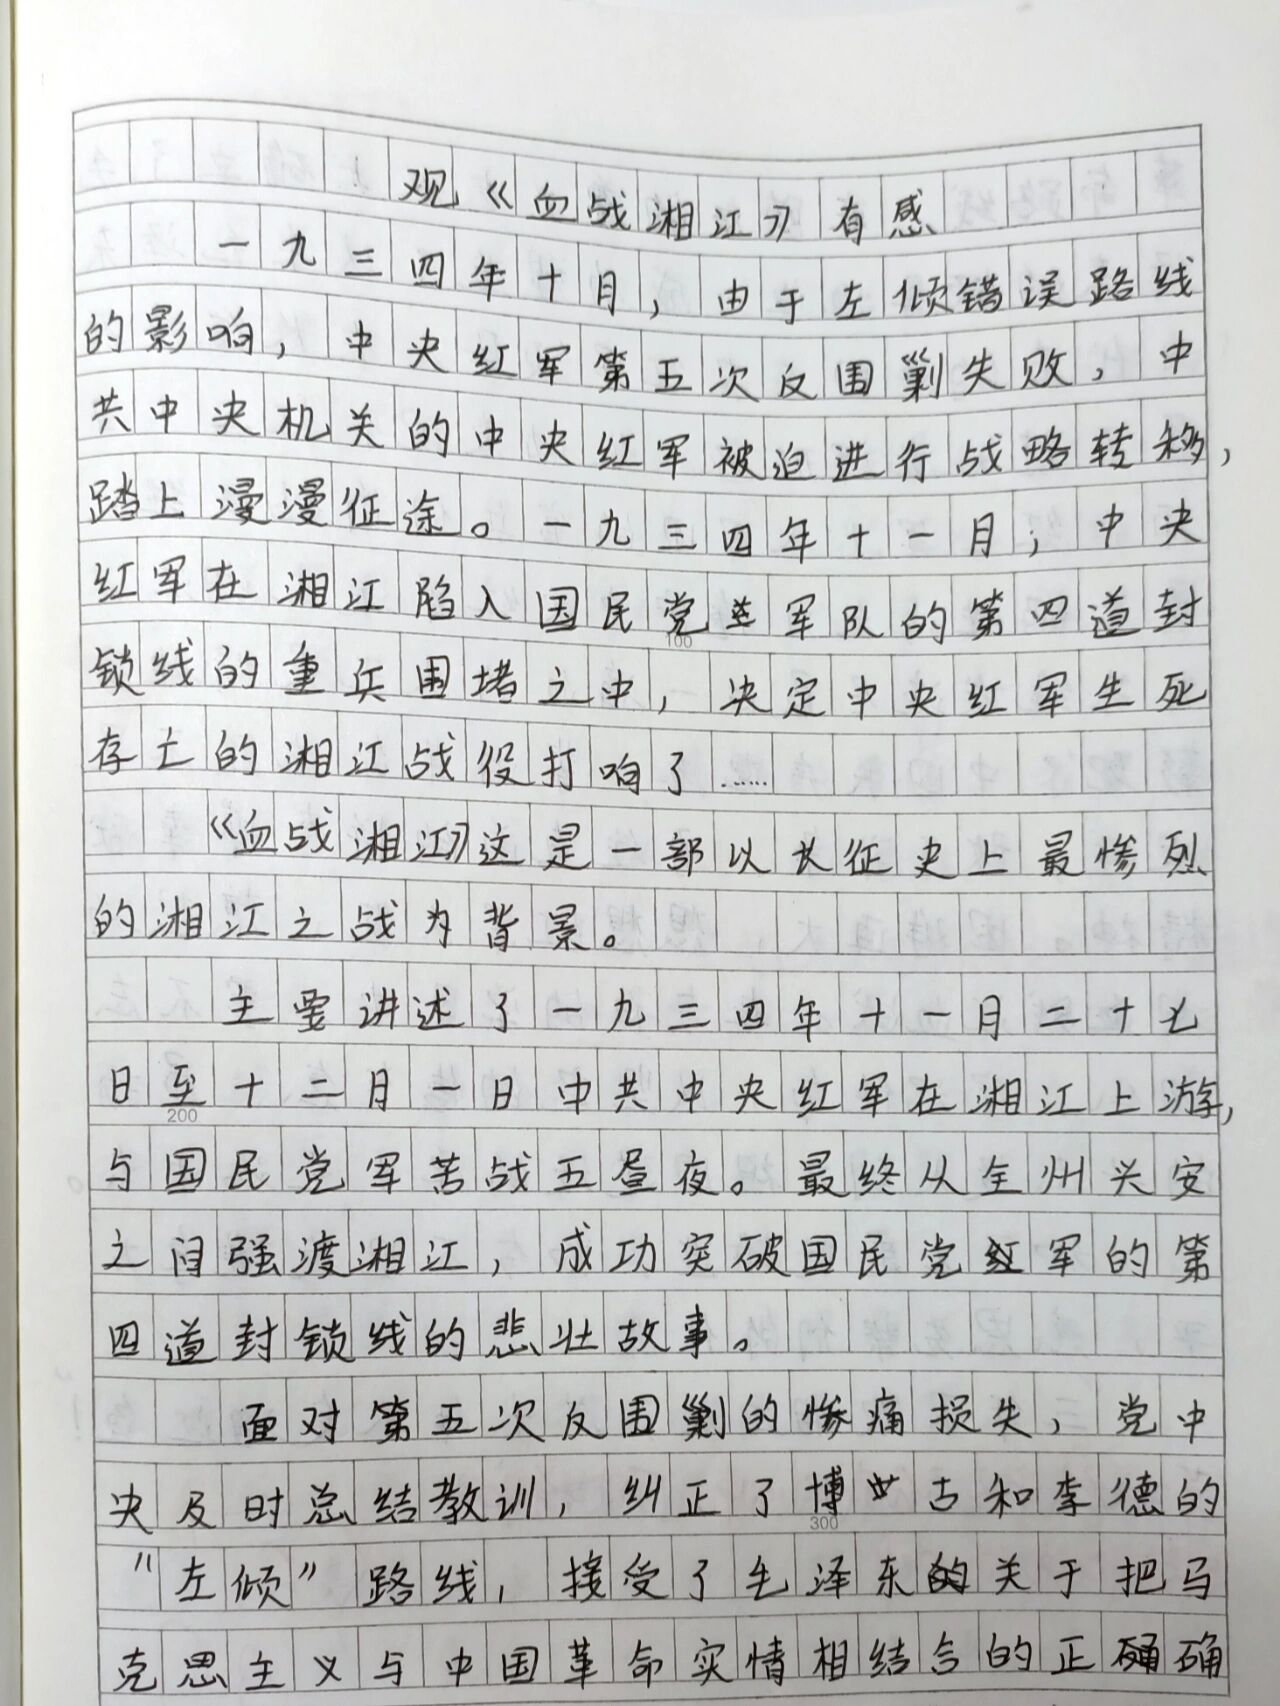 观《血战湘江》有感
一九三四年十月，由于左倾错误路线
的影响，中央红军第五次反围剿失败，中
共中央机关的中央红军被迫进行战略转移，
踏上漫漫征途。一九三四年十一月，中央
红军在湘江陷入国民党军队的第四道封
100
锁线的重兵围堵之中，决定中央红军生死
存亡的湘江战役打响了……
《血战湘江》这是一部以长征史上最惨烈
的湘江之战为背景。
主要讲述了一九三四年十一月二十七
日至十二月一日中共中央红军在湘江上游，
200
与国民党军苦战五昼夜。最终从全州兴安
之间强渡湘江，成功突破国民党军的第
四道封锁线的悲壮故事。
面对第五次反围剿的惨痛损失，党中
央及时总结教训，纠正了博古和李德的
300
"左倾"路线，接受了毛泽东关于把马
克思主义与中国革命实情相结合的正确